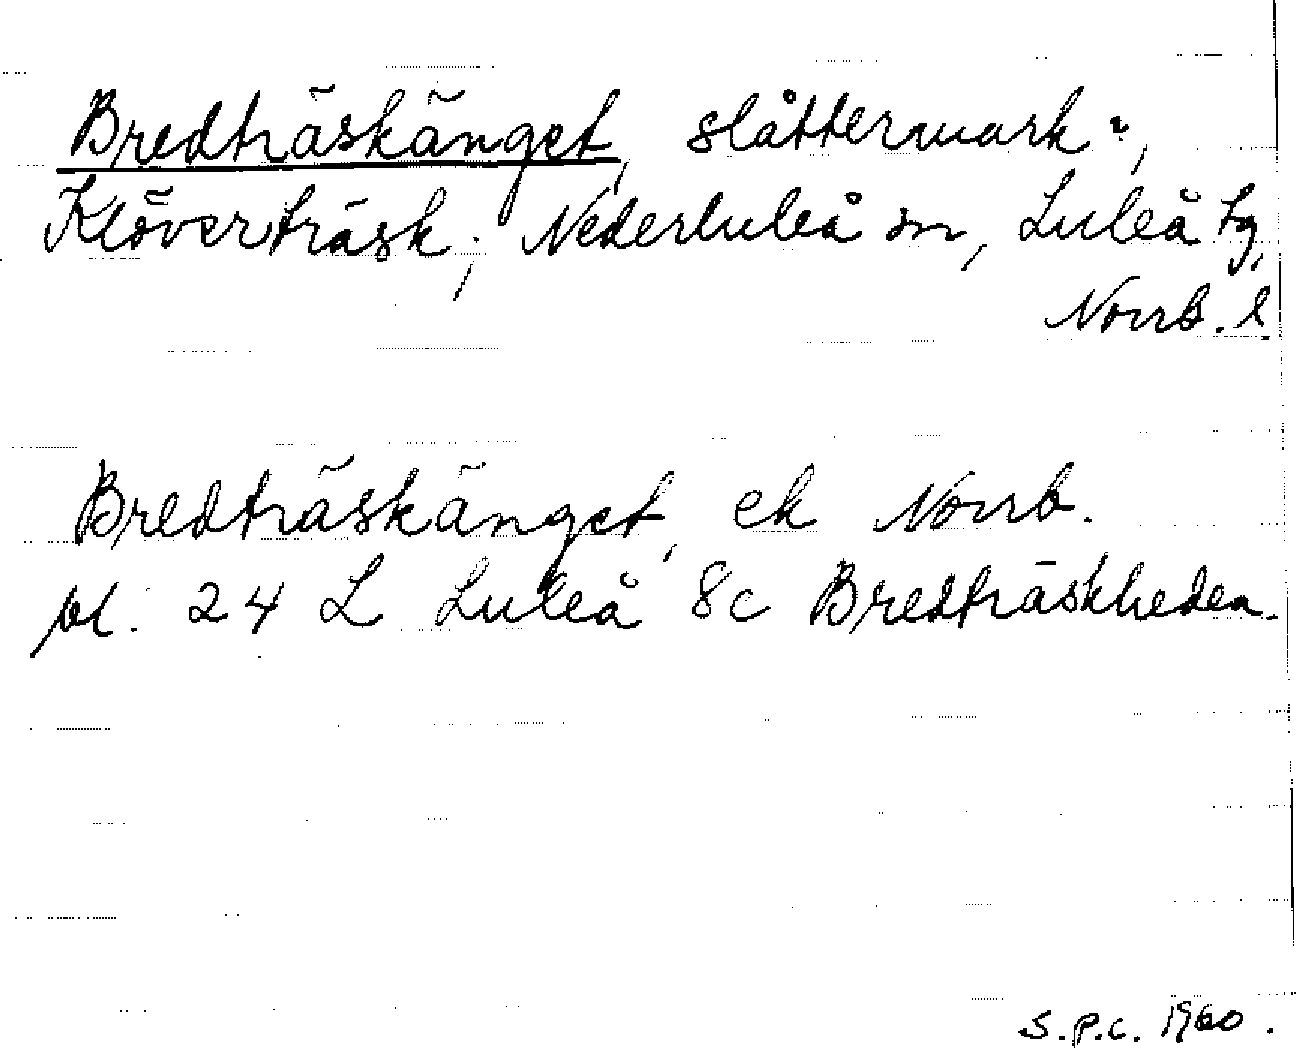 Bredträskänget, slåttermark?,
Klöverträsk, Nederluleå sn, Luleå tg,
Norrb. l
Bredträskänget, ek Norrb.
bl. 24 L Luleå 8c Bredträskheden.
S.P.C. 1960.